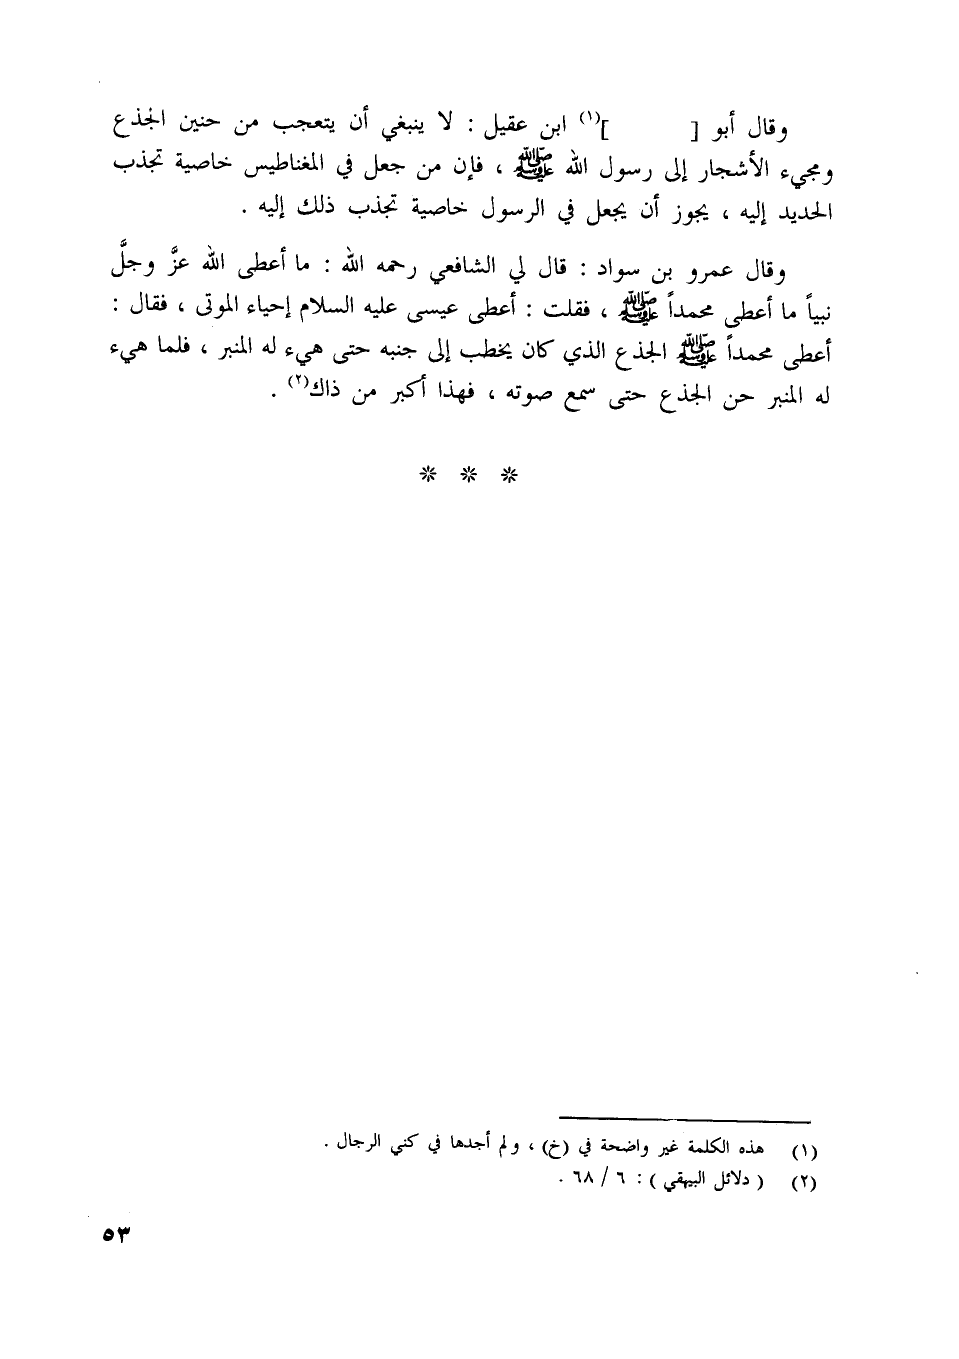 وقال أبو [ ](١) ابن عقيل : لا ينبغي أن يتعجب من حنين الجذع
ومجيء الأشجار إلى رسول الله ﷺ ، فإن من جعل في المغناطيس خاصية تجذب
الحديد إليه ، يجوز أن يجعل في الرسول خاصية تجذب ذلك إليه .
وقال عمرو بن سواد : قال لي الشافعي رحمه الله : ما أعطى الله عزَّ وجلَّ
نبياً ما أعطى محمداً ﷺ ، فقلت : أعطى عيسى عليه السلام إحياء الموتى ، فقال :
أعطى محمداً ﷺ الجذع الذي كان يخطب إلى جنبه حتى هيء له المنبر ، فلما هيء
له المنبر حن الجذع حتى سمع صوته ، فهذا أكبر من ذاك(٢) .
* * *
(١) هذه الكلمة غير واضحة في (خ) ، ولم أجدها في كني الرجال .
(٢) ( دلائل البيهقي ) : ٦ / ٦٨ .
٥٣